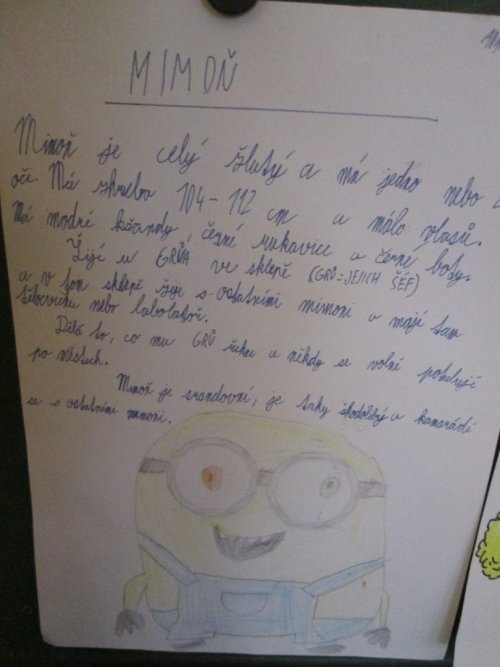 MIMOŇ
Mimoň je celý žlutý a má jedno nebo
oči. Má zhruba 104-112 cm a málo vlasů.
Má modré kšandy, černé rukavice a černé boty.
Žijí u GRŮA ve sklepě (GRŮ=JEJICH ŠÉF)
a v tom sklepě žije s ostatními mimoni a mají tam
tělocvičnu nebo labolatoř.
Dělá to, co mu GRŮ řekne a někdy se volně potulují
po městech.
Mimoň je srandovní, je taky škodolibý a kamarádí
se s ostatními mimoni.